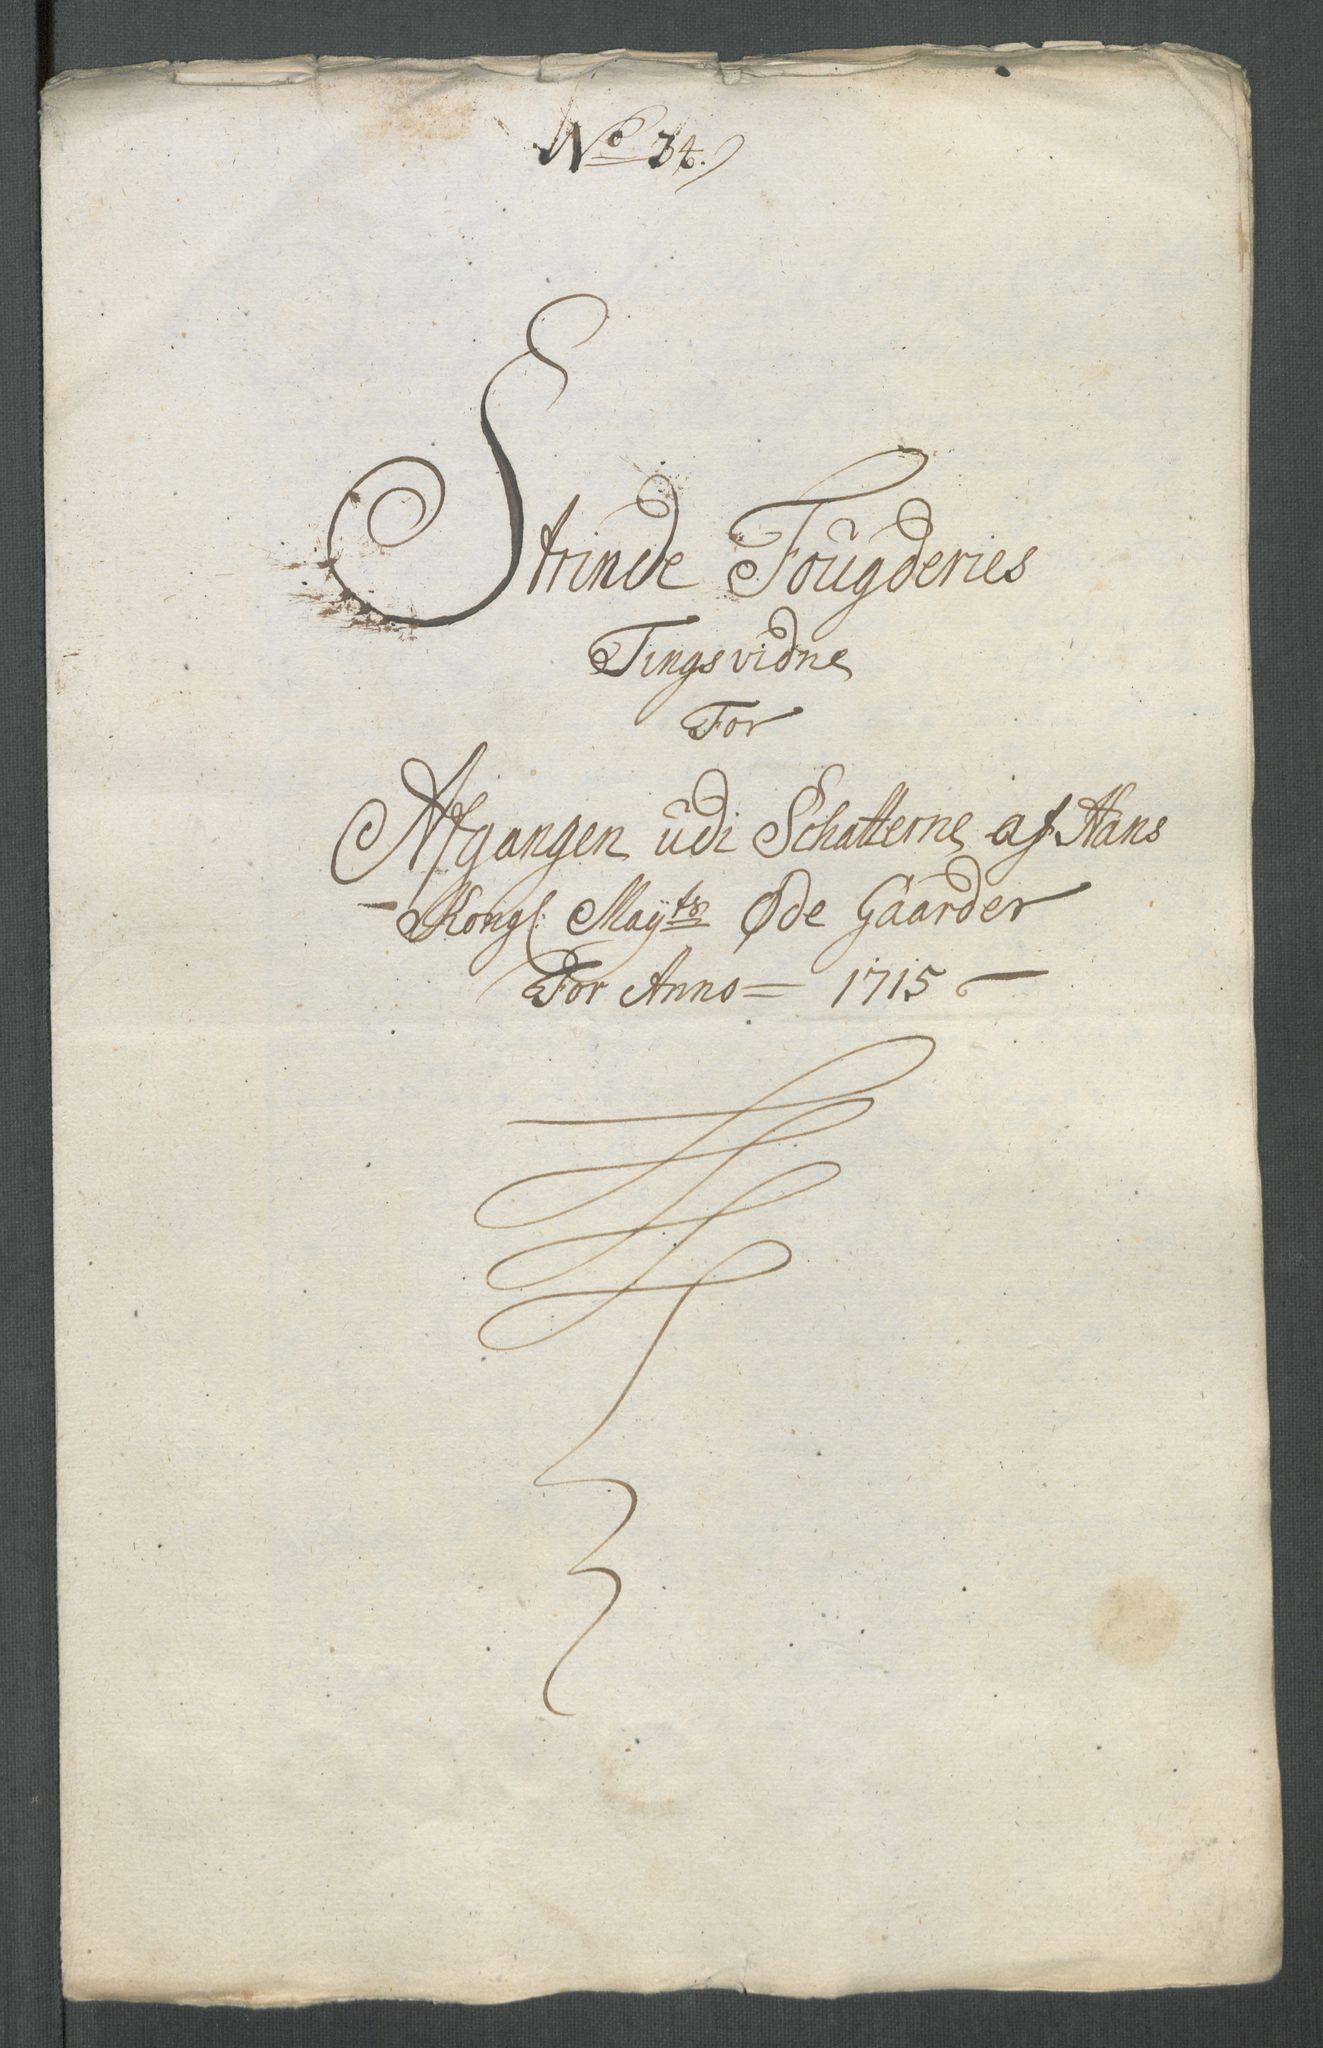 No 34.
Strinde Fougderies
Tingsvidne
For
Afgangen udi Schatterne af Hans
Kongl: Mayts Øde Gaarder
For Anno = 1715 –